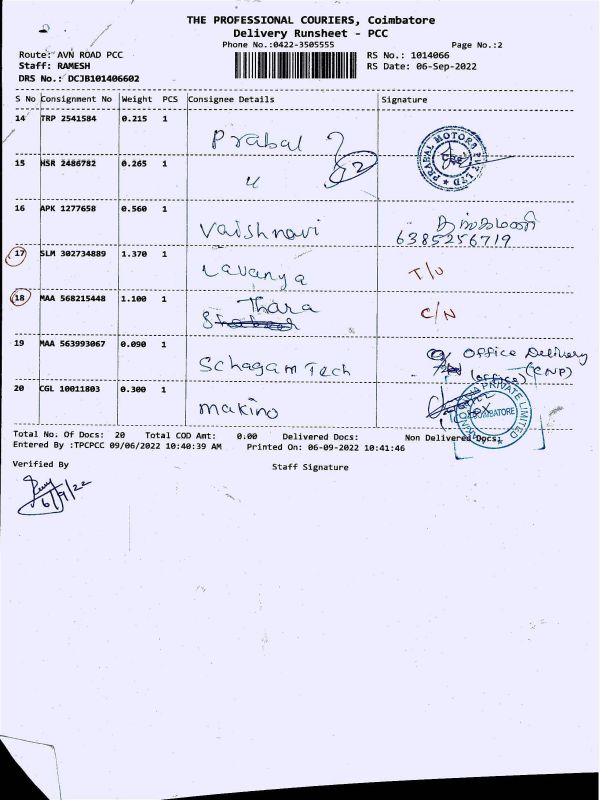 THE PROFESSIONAL COURIERS, Coimbatore
Delivery Runsheet - PCC
Phone No.:0422-3505555 Page No.:2
Route: AVN ROAD PCC RS No.: 1014066
Staff: RAMESH RS Date: 06-Sep-2022
DRS No.: DCJB101406602
S No Consignment No Weight PCS Consignee Details Signature
14 TRP 2541584 0.215 1 Prabal PRABAL MOTORS
15 HSR 2486782 0.265 1 " 2
16 APK 1277658 0.560 1 Vaishnavi
6385256719
17 SLM 302734889 1.370 1 Lavanya T/U
18 MAA 568215448 1.100 1 Thara C/N
19 MAA 563993067 0.090 1 Schagam Tech Office Delivery
(office) (CNP)
20 CGL 10011803 0.300 1 makino PRIVATE LIMITED COIMBATORE
Total No. Of Docs: 20 Total COD Amt: 0.00 Delivered Docs: Non Delivered Docs:
Entered By :TPCPCC 09/06/2022 10:40:39 AM Printed On: 06-09-2022 10:41:46
Verified By Staff Signature
6/9/22